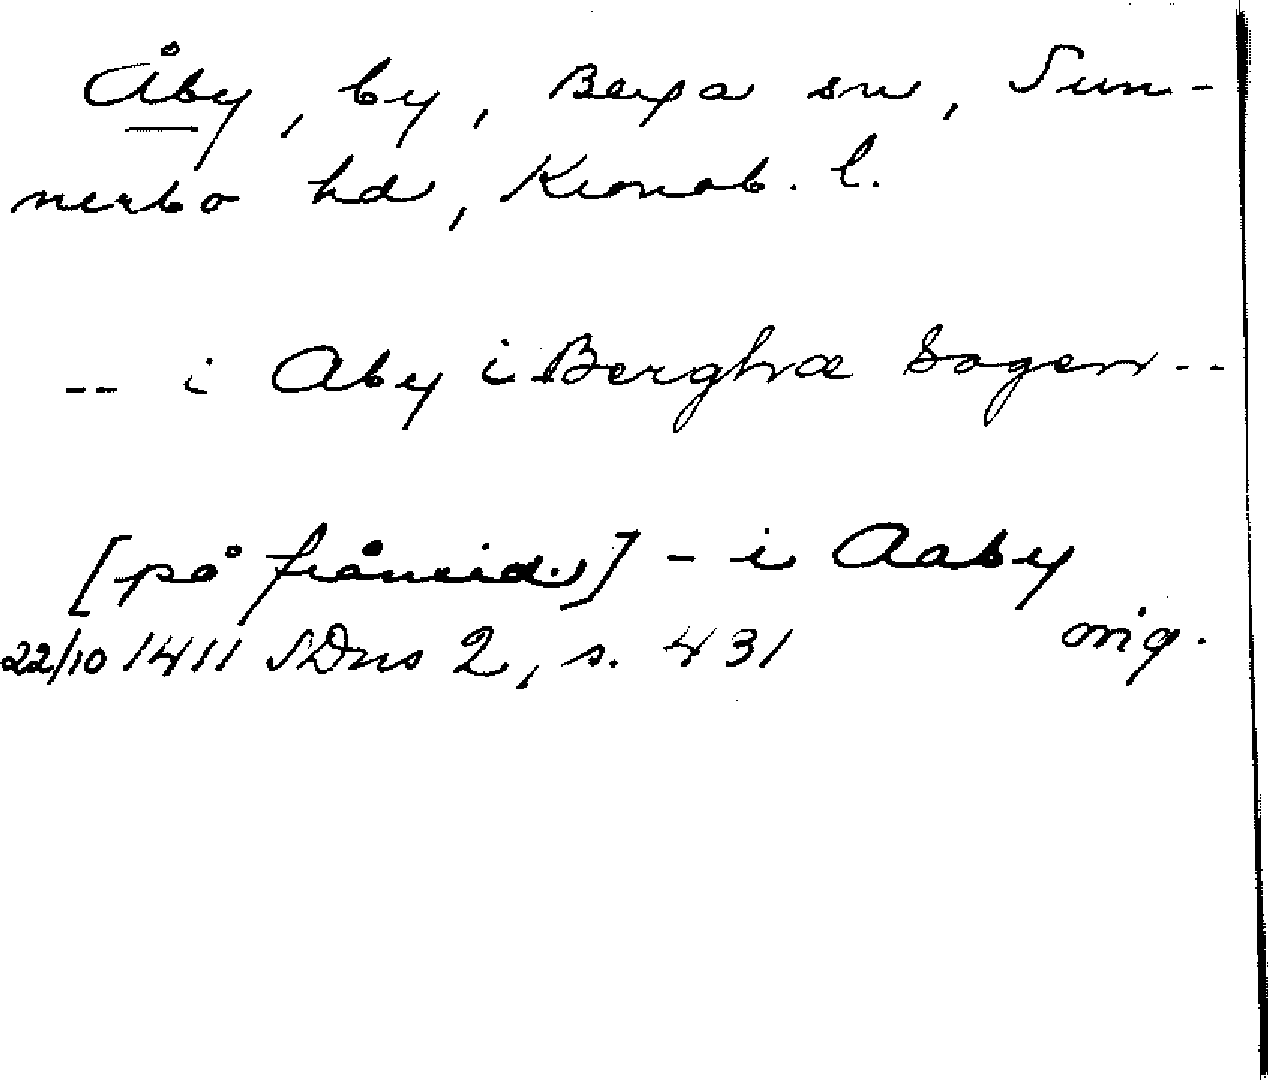 Åby, by, Berga sn, Sun-
nerbo hd, Kronob. l.
-- i Aby i Berghæ Sogen --
[på frånsid.] - i Aaby
22/10 1411 SDns 2, s. 431 orig.